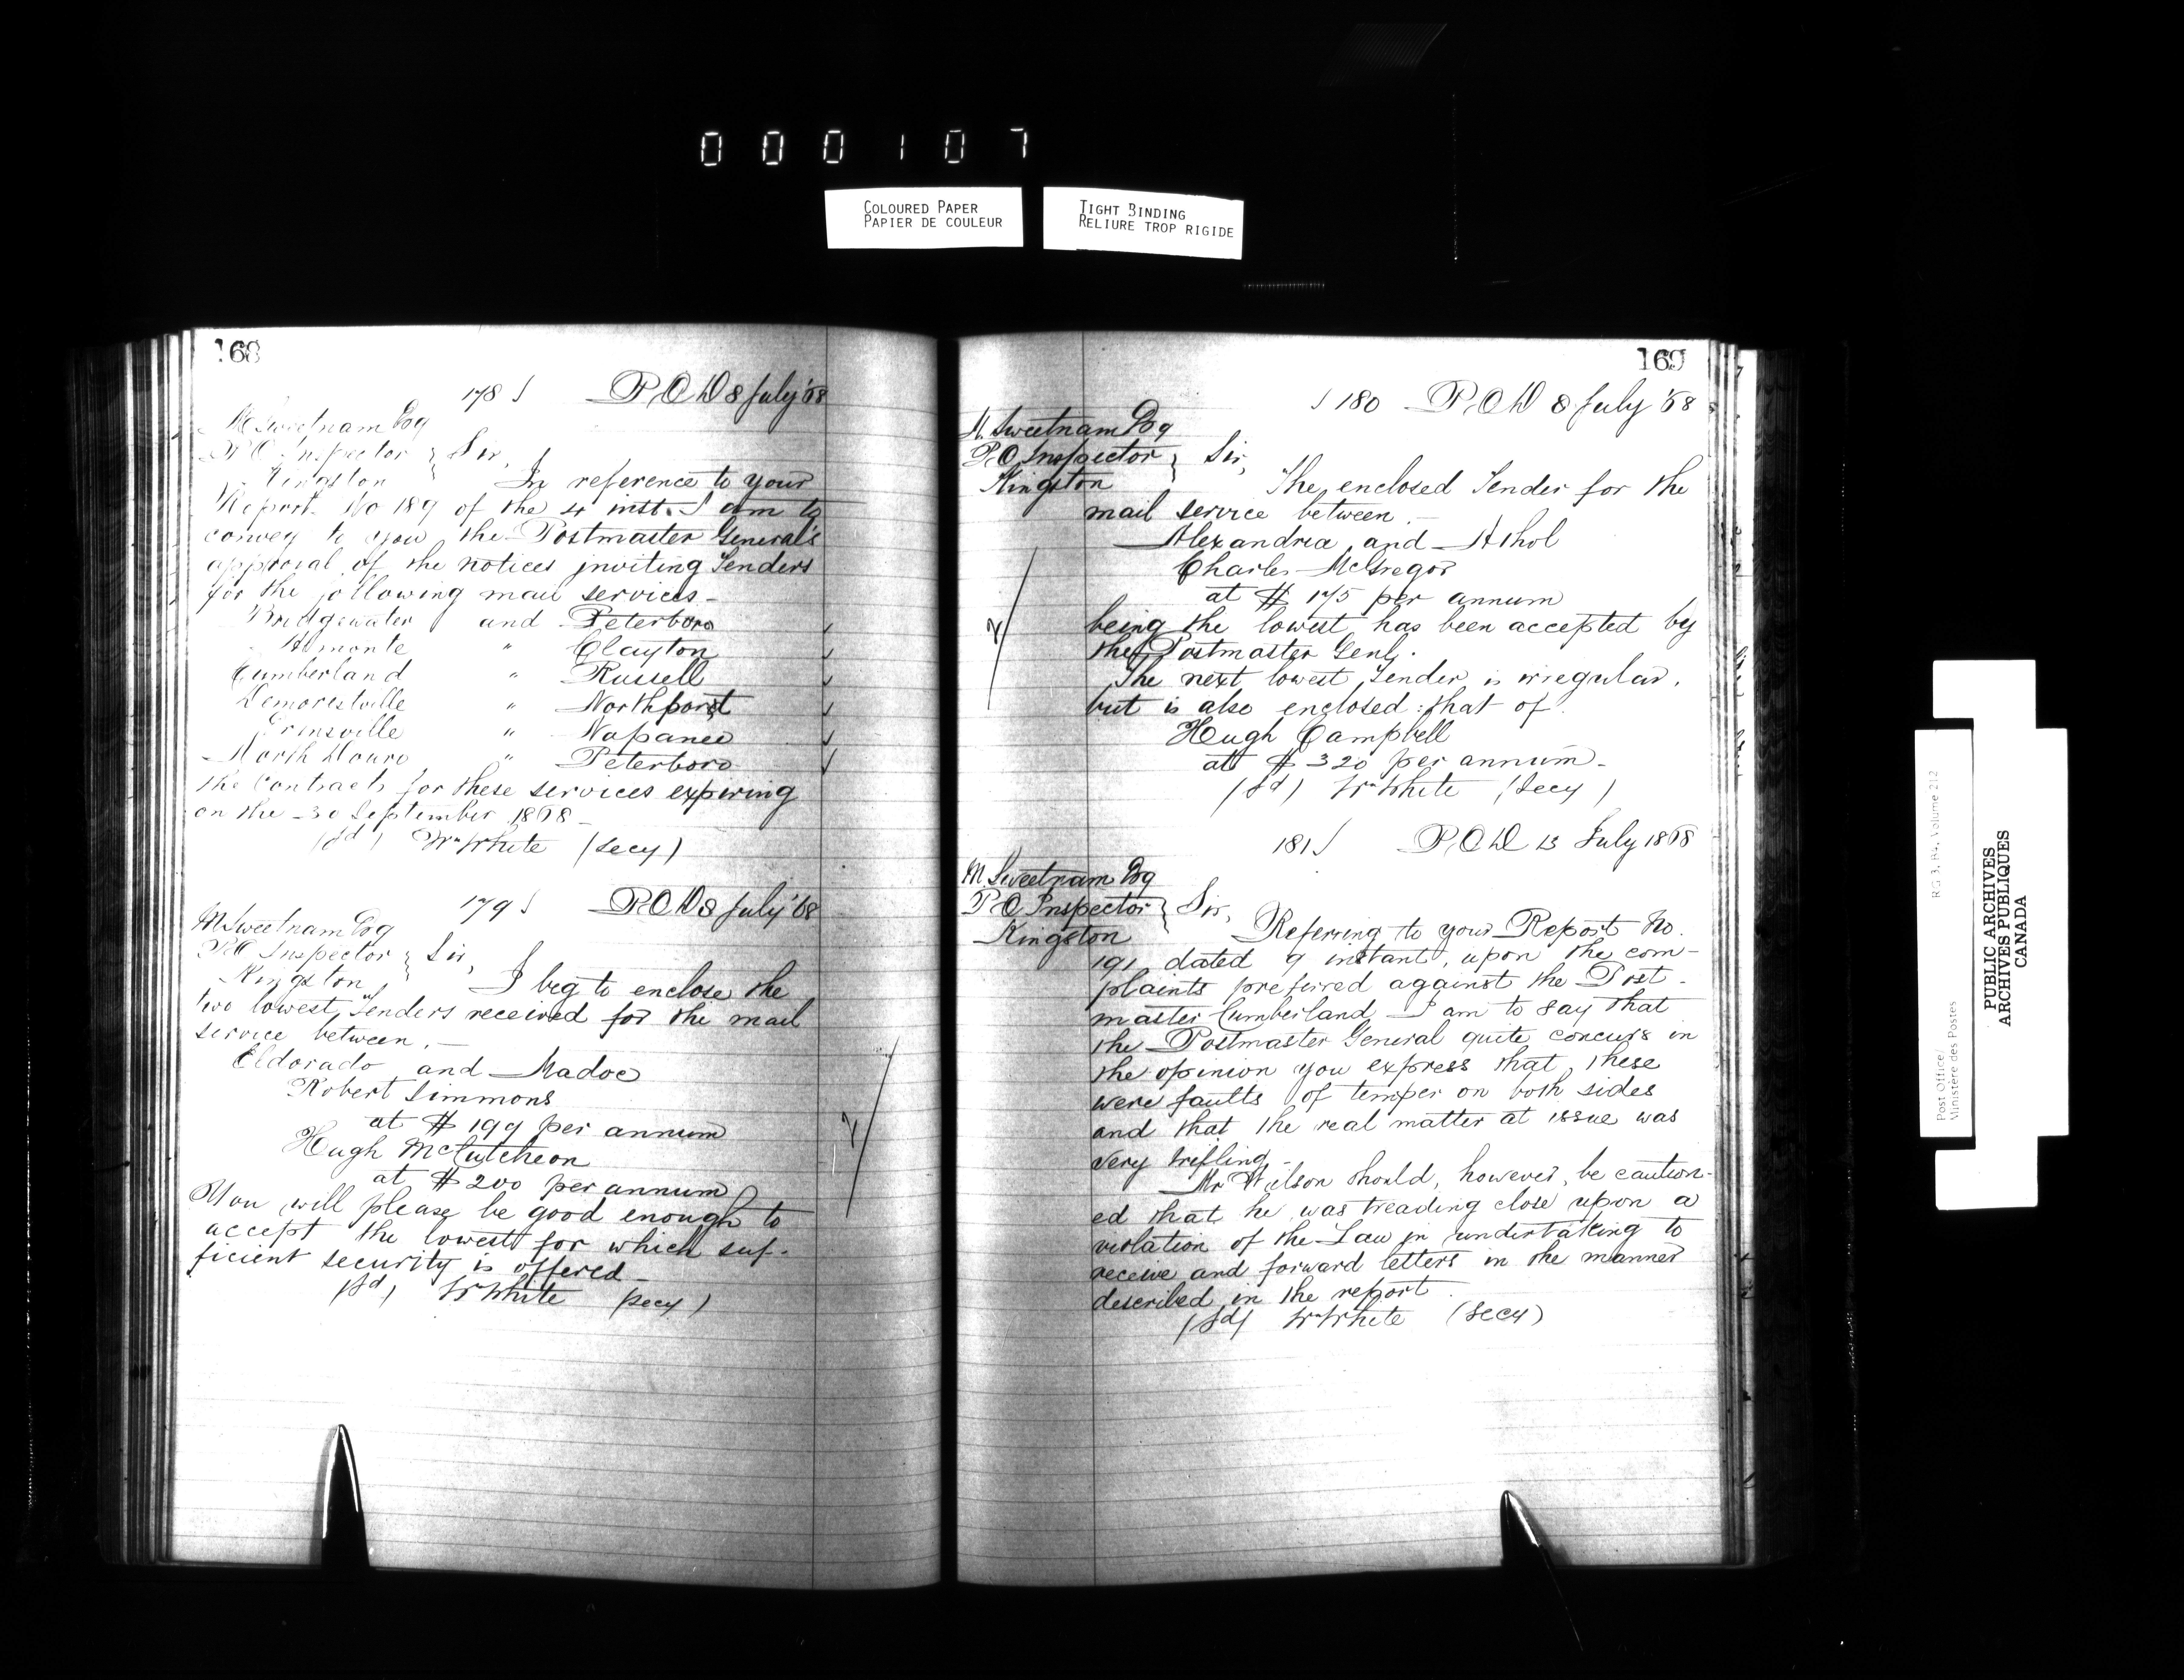 000107
COLOURED PAPER
PAPIER DE COULEUR
TIGHT BINDING
RELIURE TROP RIGIDE
168
178 P.O.D 8 July '68
M Sweetnam Esq
P.O Inspector } Sir,
Kingston } In reference to your
Report No 189 of the 4 inst. I am to
convey to you the Postmaster General's
approval of the notices inviting Tenders
for the following mail services -
Bridgewater and Peterboro
Almonte " Clayton
Cumberland " Russell
Demorestville " Northport
Erinsville " Napanee
North Douro " Peterboro
the Contracts for these services expiring
on the 30 September 1868 -
(sd) Wm White (Secy)
179 P.O.D 8 July '68
M Sweetnam Esq
P.O Inspector } Sir,
Kingston } I beg to enclose the
two lowest Tenders received for the mail
service between. -
Eldorado and Madoc
Robert Simmons
at $ 199 per annum
Hugh McCutcheon
at $ 200 per annum
You will please be good enough to
accept the lowest for which suf-
ficient security is offered -
(sd) Wm White (secy)
169
180 P.O.D 8 July '68
M. Sweetnam Esq
P.O Inspector } Sir,
Kingston The enclosed Tender for the
mail service between. -
Alexandria and Athol
Charles McGregor
at $ 175 per annum
being the lowest has been accepted by
the Postmaster Genl.
The next lowest Tender is irregular,
but is also enclosed: that of
Hugh Campbell
at $ 320 per annum -
(sd) Wm White (Secy)
181 P.O.D 13 July 1868
M. Sweetnam Esq
P.O Inspector } Sir,
Kingston Referring to your Report No.
191 dated 9 instant, upon the com-
plaints preferred against the Post-
master Cumberland I am to say that
the Postmaster General quite concurs in
the opinion you express that, these
were faults of temper on both sides
and that the real matter at issue was
very trifling -
Mr Wilson should, however, be caution-
ed that he was treading close upon a
violation of the Law in undertaking to
receive and forward letters in the manner
described in the report
(sd) Wm White (Secy)
Post Office/ RG 3, B4, Volume 212
Ministère des Postes
PUBLIC ARCHIVES
ARCHIVES PUBLIQUES
CANADA